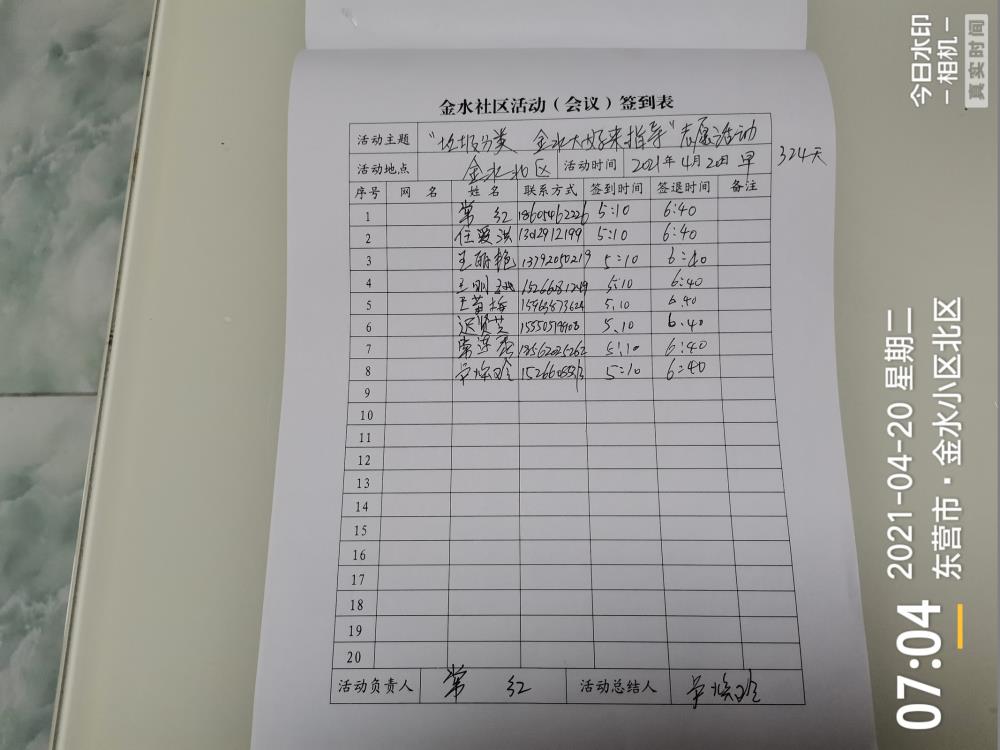 金水社区活动（会议）签到表
活动主题 "垃圾分类、金水大嫂来指导"志愿活动
活动地点 金水北区 活动时间 2021年4月20日 早 324天
序号 网 名 姓 名 联系方式 签到时间 签退时间 备注
1 常 红 18605462226 5:10 6:40
2 任爱洪 13012912199 5:10 6:40
3 王丽艳 13792050219 5:10 6:40
4 5:10 6:40
5 5.10 6.40
6 5.10 6.40
7 18562025262 5:10 6:40
8 5:10 6:40
9
10
11
12
13
14
15
16
17
18
19
20
活动负责人 常 红 活动总结人
今日水印
－相机－
真实时间
07:04
2021-04-20 星期二
东营市·金水小区北区